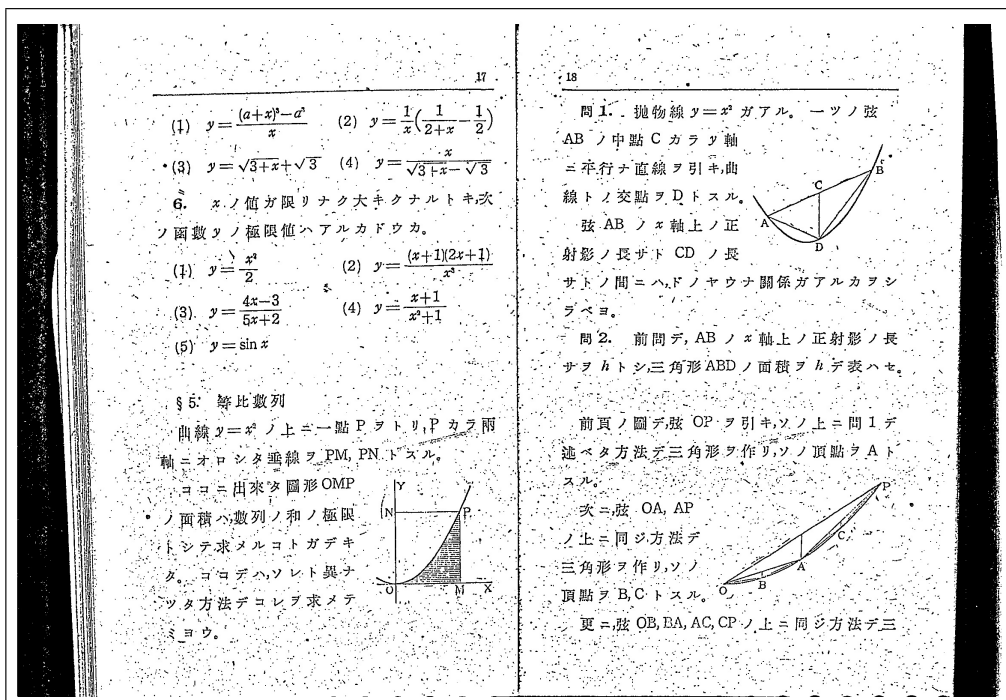 17
(1) y=\frac{(a+x)³-a³}{x} (2) y=\frac{1}{x}(\frac{1}{2+x}-\frac{1}{2})
(3) y=√3+x+√3 (4) y=\frac{x}{√3+x-√3}
6. xノ値ガ限リナク大キクナルトキ,次
ノ函數yノ極限値ハアルカドウカ。
(1) y=\frac{x²}{2} (2) y=\frac{(x+1)(2x+1)}{x³}
(3) y=\frac{4x-3}{5x+2} (4) y=\frac{x+1}{x²+1}
(5) y=sin x
§5. 等比數列
曲線y=x²ノ上ニ一點Pヲトリ,Pカラ兩
軸ニオロシタ垂線ヲPM, PNトスル。
ココニ出來タ圖形OMP
ノ面積ハ,數列ノ和ノ極限
トシテ求メルコトガデキ
タ。ココデハ,ソレト異ナ
ツタ方法デコレヲ求メテ
ミヨウ。
Y
N
P
O
M
X
18
問1. 拋物線y=x²ガアル。一ツノ弦
ABノ中點Cカラy軸
ニ平行ナ直線ヲ引キ,曲
線トノ交點ヲDトスル。
弦ABノx軸上ノ正
射影ノ長サトCDノ長
サトノ間ニハ,ドノヤウナ關係ガアルカヲシ
ラベヨ。
A
B
C
D
問2. 前問デ, ABノx軸上ノ正射影ノ長
サヲhトシ,三角形ABDノ面積ヲhデ表ハセ。
前頁ノ圖デ,弦OPヲ引キ,ソノ上ニ問1デ
述ベタ方法デ三角形ヲ作リ,ソノ頂點ヲAト
スル。
次ニ,弦OA, AP
ノ上ニ同ジ方法デ
三角形ヲ作リ,ソノ
頂點ヲB, Cトスル。
P
C
A
B
O
更ニ,弦OB, BA, AC, CPノ上ニ同ジ方法デ三